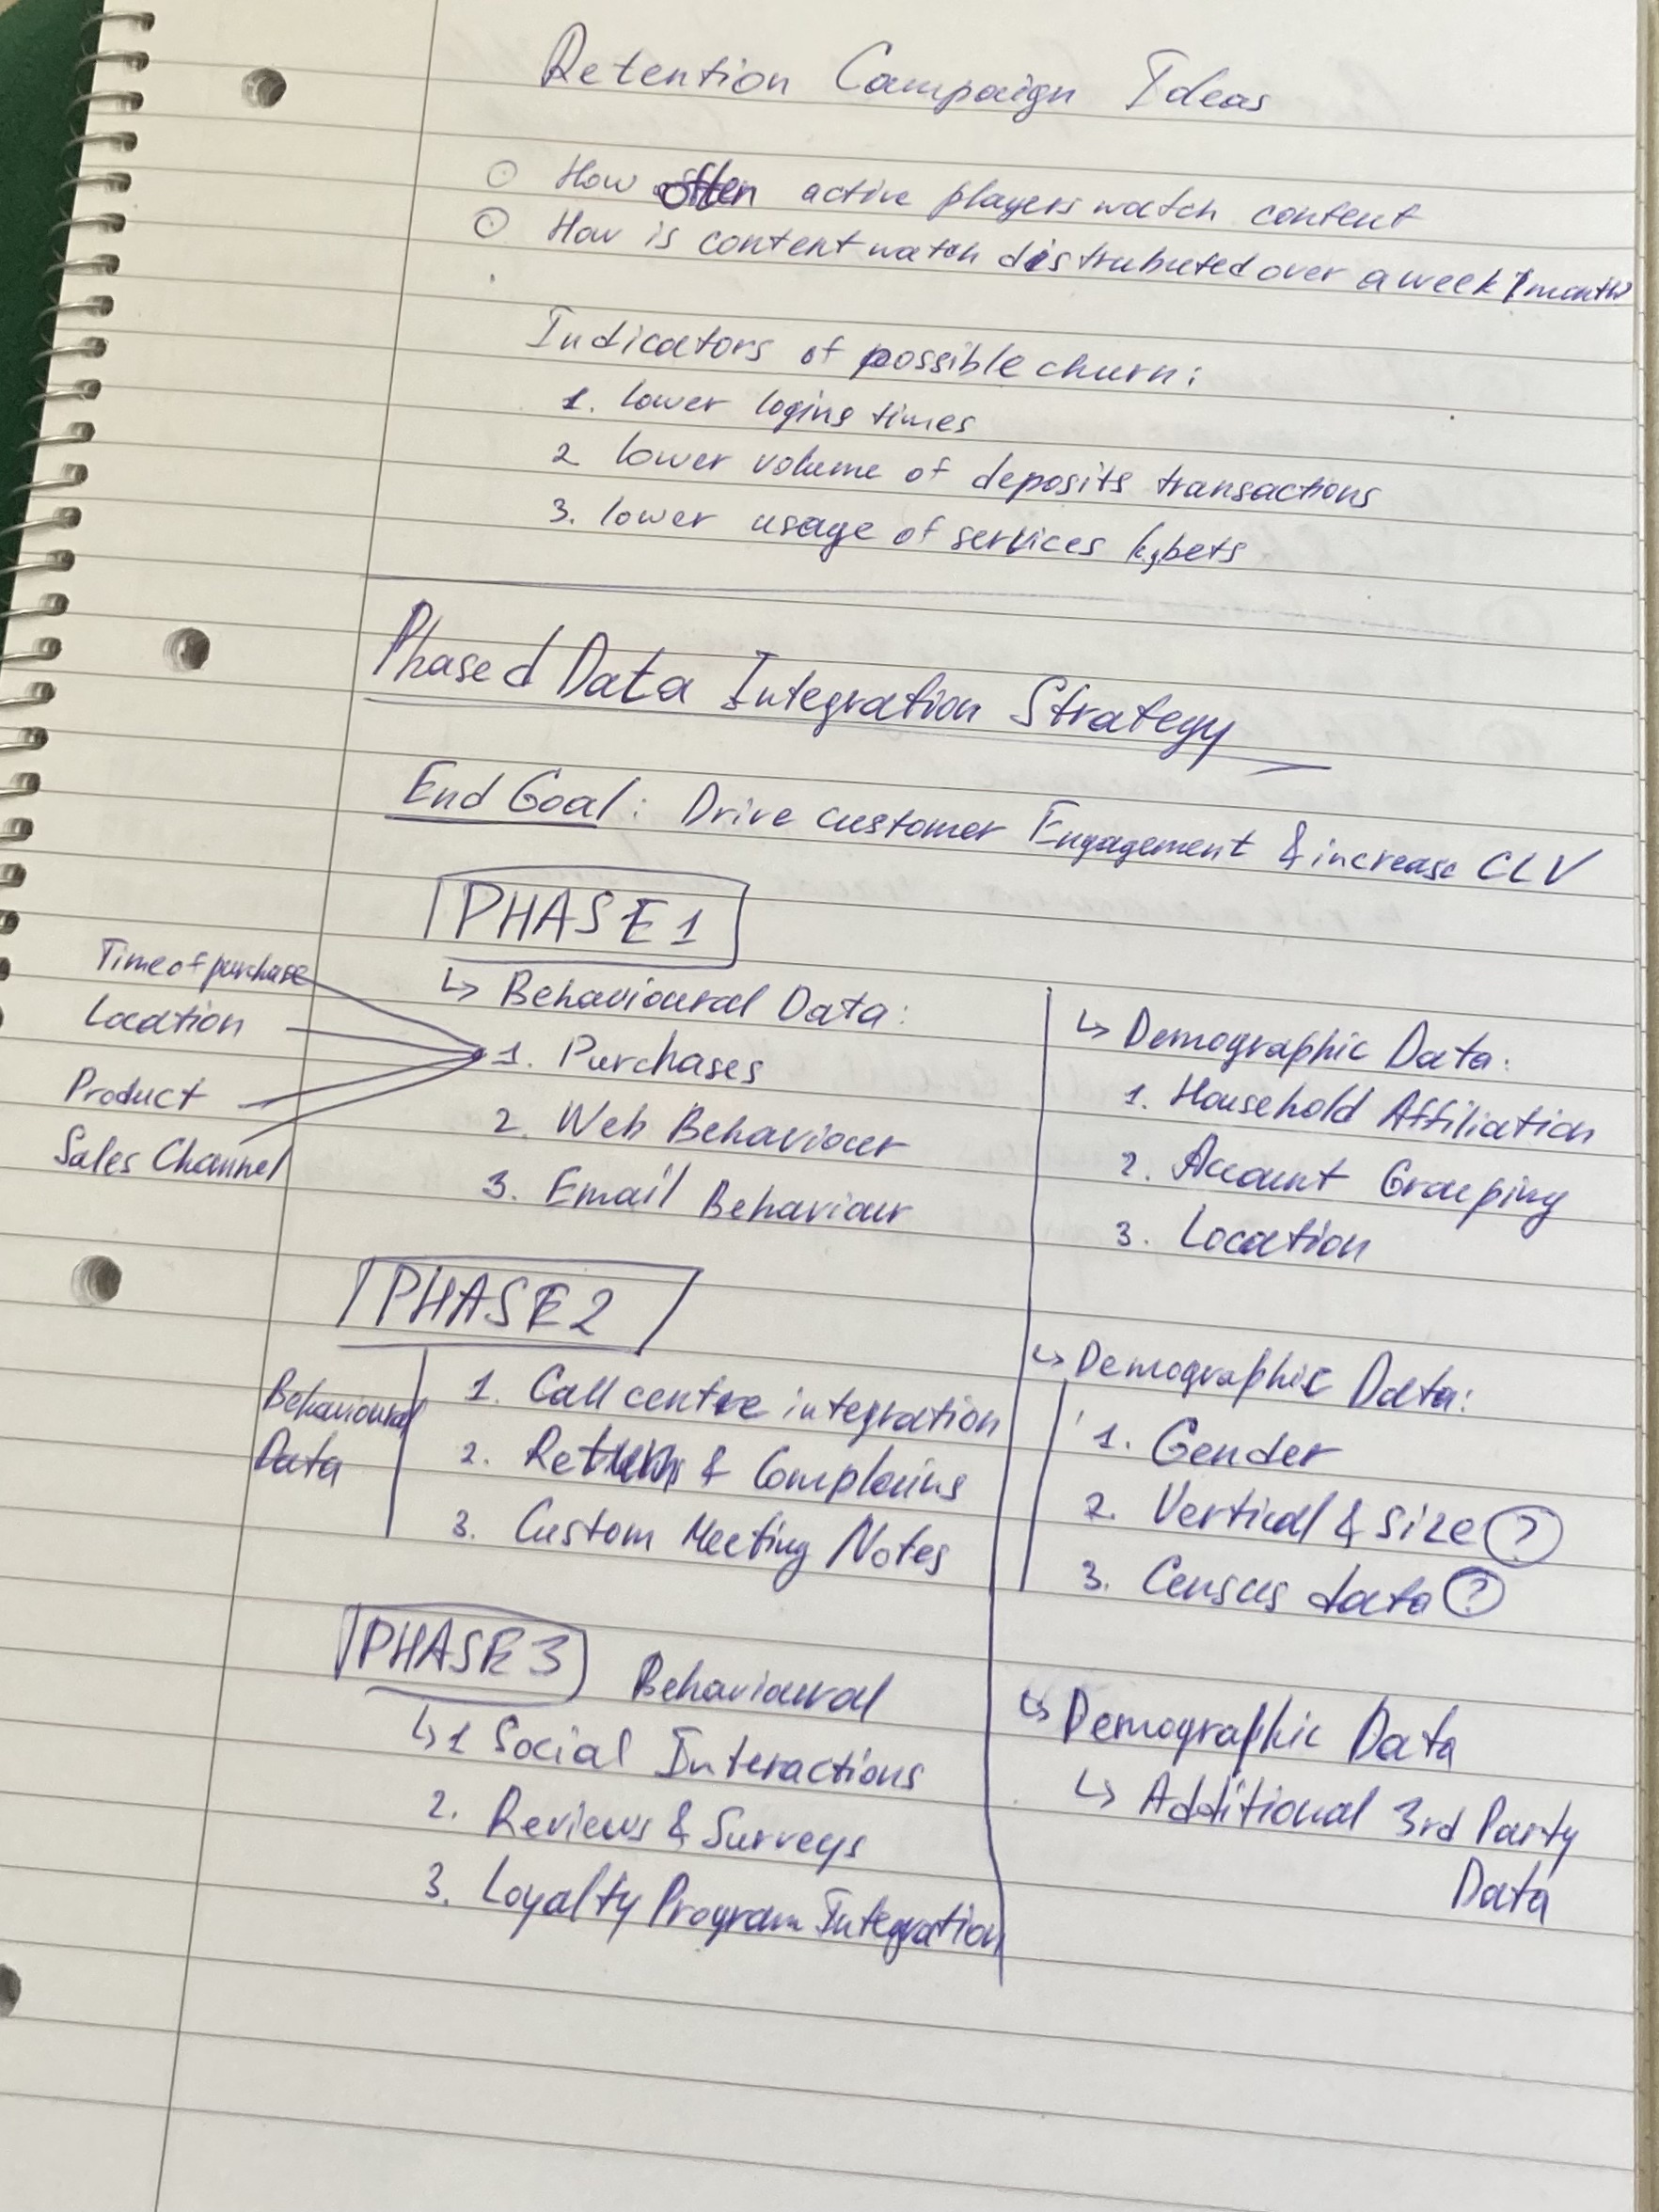 Retention Campaign Ideas
○ How often active players watch content
○ How is content watch distrubuted over a week / month
Indicators of possible churn:
1. lower logins times
2 lower volume of deposits transactions
3. lower usage of services bets
Phased Data Integration Strategy
End Goal: Drive customer Engagement & increase CLV
PHASE 1
↳ Behavioural Data:
1. Purchases
Time of purchase
Location
Product
Sales Channel
2. Web Behaviour
3. Email Behaviour
↳ Demographic Data:
1. Household Affiliation
2. Account Grouping
3. Location
PHASE 2
Behavioural
Data
1. Call centre integration
2. Returns & Complains
3. Custom Meeting Notes
↳ Demographic Data:
1. Gender
2. Vertical & size ?
3. Census data ?
PHASE 3 Behavioural
↳ 1 Social Interactions
2. Reviews & Surveys
3. Loyalty Program Integration
↳ Demographic Data
↳ Additional 3rd Party
Data